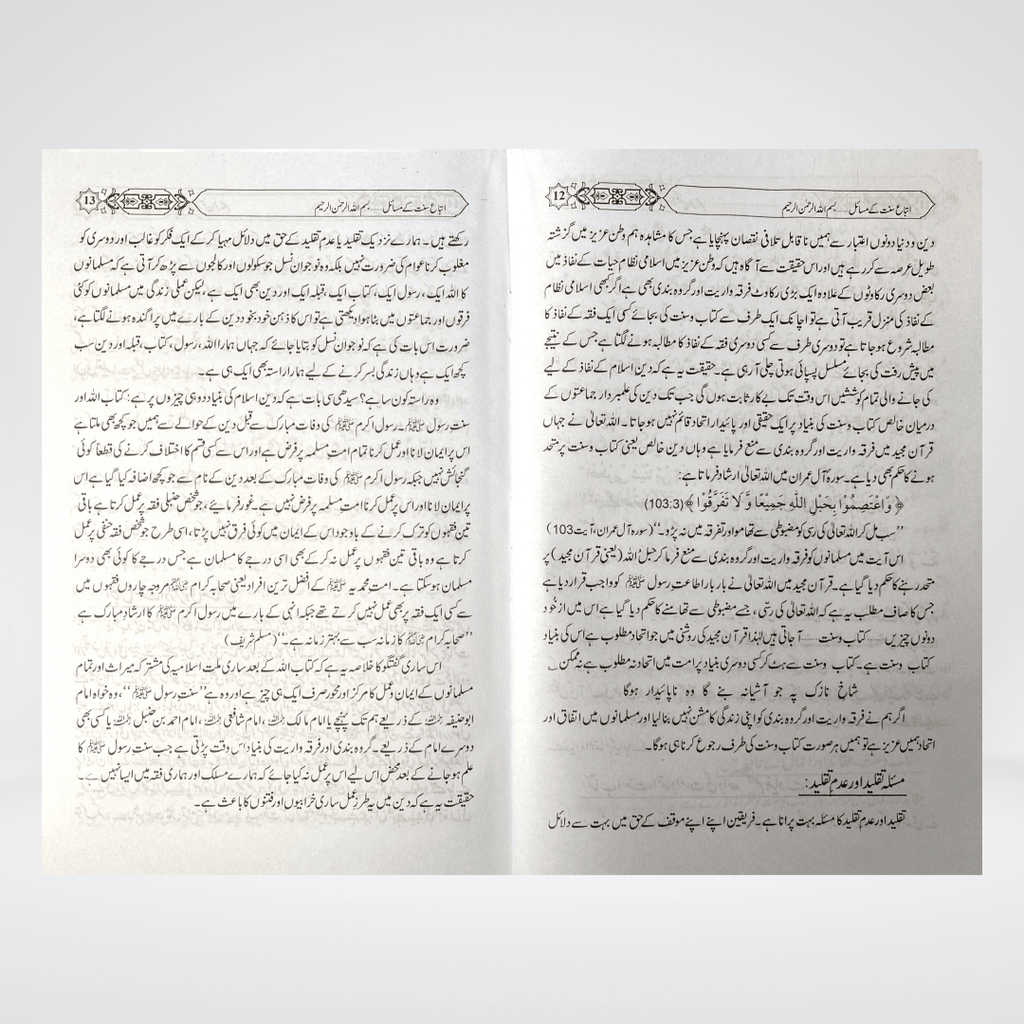 اتباع سنت کے مسائل.....بسم اللہ الرحمٰن الرحیم
12
دین و دنیا دونوں اعتبار سے ہمیں ناقابل تلافی نقصان پہنچایا ہے جس کا مشاہدہ ہم وطن عزیز میں گزشتہ
طویل عرصہ سے کر رہے ہیں اور اس حقیقت سے آگاہ ہیں کہ وطن عزیز میں اسلامی نظام حیات کے نفاذ میں
بعض دوسری رکاوٹوں کے علاوہ ایک بڑی رکاوٹ فرقہ واریت اور گروہ بندی بھی ہے اگر کبھی اسلامی نظام
کے نفاذ کی منزل قریب آتی ہے تو اچانک ایک طرف سے کتاب و سنت کی بجائے کسی ایک فقہ کے نفاذ کا
مطالبہ شروع ہو جاتا ہے تو دوسری طرف سے کسی دوسری فقہ کے نفاذ کا مطالبہ ہونے لگتا ہے جس کے نتیجے
میں پیش رفت کی بجائے مسلسل پسپائی ہوتی چلی آ رہی ہے۔ حقیقت یہ ہے کہ دین اسلام کے نفاذ کے لیے
کی جانے والی تمام کوششیں اس وقت تک بے کار ثابت ہوں گی جب تک دین کی علمبردار جماعتوں کے
درمیان خالص کتاب و سنت کی بنیاد پر ایک حقیقی اور پائیدار اتحاد قائم نہیں ہو جاتا۔ اللہ تعالیٰ نے جہاں
قرآن مجید میں فرقہ واریت اور گروہ بندی سے منع فرمایا ہے وہاں دین خالص یعنی کتاب و سنت پر متحد
ہونے کا حکم بھی دیا ہے۔ سورہ آل عمران میں اللہ تعالیٰ ارشاد فرماتا ہے:
﴿ وَاعْتَصِمُوْا بِحَبْلِ اللّٰهِ جَمِيْعًا وَّ لَا تَفَرَّقُوْا ﴾(103:3)
’’سب مل کر اللہ تعالیٰ کی رسی کو مضبوطی سے تھامو اور تفرقہ میں نہ پڑو۔‘‘(سورہ آل عمران، آیت 103)
اس آیت میں مسلمانوں کو فرقہ واریت اور گروہ بندی سے منع فرما کر حبل اللہ (یعنی قرآن مجید) پر
متحد رہنے کا حکم دیا گیا ہے۔ قرآن مجید میں اللہ تعالیٰ نے بار بار اطاعت رسول ﷺ کو واجب قرار دیا ہے
جس کا صاف مطلب یہ ہے کہ اللہ تعالیٰ کی رسّی، جسے مضبوطی سے تھامنے کا حکم دیا گیا ہے اس میں ازخود
دونوں چیزیں......کتاب و سنت......آ جاتی ہیں لہٰذا قرآن مجید کی روشنی میں جو اتحاد مطلوب ہے اس کی بنیاد
کتاب و سنت ہے۔ کتاب و سنت سے ہٹ کر کسی دوسری بنیاد پر امت میں اتحاد نہ مطلوب ہے نہ ممکن۔
شاخ نازک پہ جو آشیانہ بنے گا وہ ناپائیدار ہوگا
اگر ہم نے فرقہ واریت اور گروہ بندی کو اپنی زندگی کا مشن نہیں بنا لیا اور مسلمانوں میں اتفاق اور
اتحاد ہمیں عزیز ہے تو ہمیں ہر صورت کتاب و سنت کی طرف رجوع کرنا ہی ہوگا۔
مسئلہ تقلید اور عدم تقلید:
تقلید اور عدم تقلید کا مسئلہ بہت پرانا ہے۔ فریقین اپنے اپنے موقف کے حق میں بہت سے دلائل
اتباع سنت کے مسائل.....بسم اللہ الرحمٰن الرحیم
13
رکھتے ہیں۔ ہمارے نزدیک تقلید یا عدم تقلید کے حق میں دلائل مہیا کر کے ایک فکر کو غالب اور دوسری کو
مغلوب کرنا عوام کی ضرورت نہیں بلکہ وہ نوجوان نسل جو سکولوں اور کالجوں سے پڑھ کر آتی ہے کہ مسلمانوں
کا اللہ ایک، رسول ایک، کتاب ایک، قبلہ ایک اور دین بھی ایک ہے، لیکن عملی زندگی میں مسلمانوں کو کئی
فرقوں اور جماعتوں میں بٹا ہوا دیکھتی ہے تو اس کا ذہن خود بخود دین کے بارے میں پراگندہ ہونے لگتا ہے،
ضرورت اس بات کی ہے کہ نوجوان نسل کو بتایا جائے کہ جہاں ہمارا اللہ، رسول، کتاب، قبلہ اور دین سب
کچھ ایک ہے وہاں زندگی بسر کرنے کے لیے ہمارا راستہ بھی ایک ہی ہے۔
وہ راستہ کون سا ہے؟ سیدھی سی بات ہے کہ دین اسلام کی بنیاد دو ہی چیزوں پر ہے: کتاب اللہ اور
سنت رسول ﷺ۔ رسول اکرم ﷺ کی وفات مبارک سے قبل دین کے حوالے سے ہمیں جو کچھ بھی ملتا ہے
اس پر ایمان لانا اور عمل کرنا تمام امت مسلمہ پر فرض ہے اور اس سے کسی قسم کا اختلاف کرنے کی قطعاً کوئی
گنجائش نہیں جبکہ رسول اکرم ﷺ کی وفات مبارک کے بعد دین کے نام سے جو کچھ اضافہ کیا گیا ہے اس
پر ایمان لانا اور اس پر عمل کرنا امت مسلمہ پر فرض نہیں ہے۔ غور فرمائیے، جو شخص حنبلی فقہ پر عمل کرتا ہے باقی
تین فقہوں کو ترک کرنے کے باوجود اس کے ایمان میں کوئی فرق نہیں پڑتا، اسی طرح جو شخص فقہ حنفی پر عمل
کرتا ہے وہ باقی تین فقہوں پر عمل نہ کر کے بھی اسی درجے کا مسلمان ہے جس درجے کا کوئی بھی دوسرا
مسلمان ہو سکتا ہے۔ امت محمدیہ ﷺ کے افضل ترین افراد یعنی صحابہ کرام رضی اللہ عنہم مروجہ چاروں فقہوں میں
سے کسی ایک فقہ پر بھی عمل نہیں کرتے تھے جبکہ انہی کے بارے میں رسول اکرم ﷺ کا ارشاد مبارک ہے
’’صحابہ کرام رضی اللہ عنہم کا زمانہ سب سے بہتر زمانہ ہے۔‘‘(مسلم شریف)
اس ساری گفتگو کا خلاصہ یہ ہے کہ کتاب اللہ کے بعد ساری ملت اسلامیہ کی مشترکہ میراث اور تمام
مسلمانوں کے ایمان و عمل کا مرکز اور محور صرف ایک ہی چیز ہے اور وہ ہے ’’سنت رسول ﷺ‘‘، وہ خواہ امام
ابو حنیفہ رحمہ اللہ کے ذریعے ہم تک پہنچے یا امام مالک رحمہ اللہ، امام شافعی رحمہ اللہ، امام احمد بن حنبل رحمہ اللہ یا کسی بھی
دوسرے امام کے ذریعے۔ گروہ بندی اور فرقہ واریت کی بنیاد اس وقت پڑتی ہے جب سنت رسول ﷺ کا
علم ہو جانے کے بعد محض اس لیے اس پر عمل نہ کیا جائے کہ ہمارے مسلک اور ہماری فقہ میں ایسا نہیں ہے۔
حقیقت یہ ہے کہ دین میں یہ طرز عمل ساری خرابیوں اور فتنوں کا باعث ہے۔